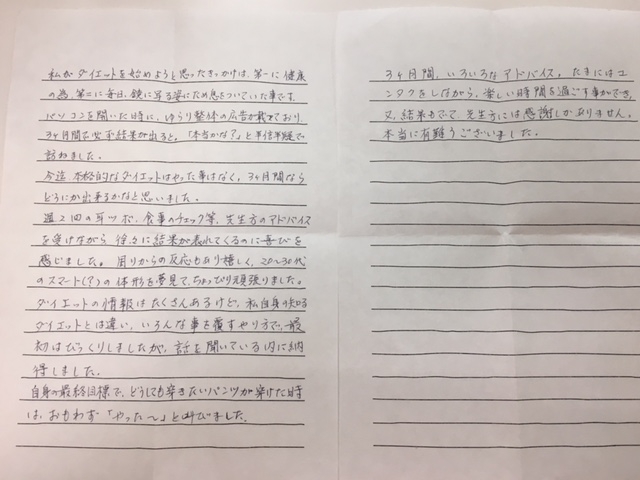 私がダイエットを始めようと思ったきっかけは、第一に健康
の為、第二に毎日、鏡に写る姿にため息をついていた事です。
パソコンを開いた時に、ゆらり整体の広告が載っており、
3ヶ月間で必ず結果が出ると。「本当かな?」と半信半疑で
訪ねました。
今迄本格的なダイエットはやった事はなく、3ヶ月間なら
どうにか出来るかなと思いました。
週2回の耳ツボ、食事のチェック等、先生方のアドバイス
を受けながら 徐々に結果が表れてくるのに喜びを
感じました。周りからの反応もあり嬉しく、20〜30代
のスマート(?)の体形を夢見て、ちょっぴり頑張りました。
ダイエットの情報はたくさんあるけど、私自身の知る
ダイエットとは違い、いろんな事を覆すやり方で、最
初はびっくりしましたが、話を聞いている内に納
得しました。
自身の最終目標で、どうしても穿きたいパンツが穿けた時
は、おもわず「やった〜」と叫びました。
3ヶ月間、いろいろなアドバイス、たまにはユ
ンタクをしながら、楽しい時間を過ごす事ができ、
又、結果もでて、先生方には感謝しかありません。
本当に有難うございました。